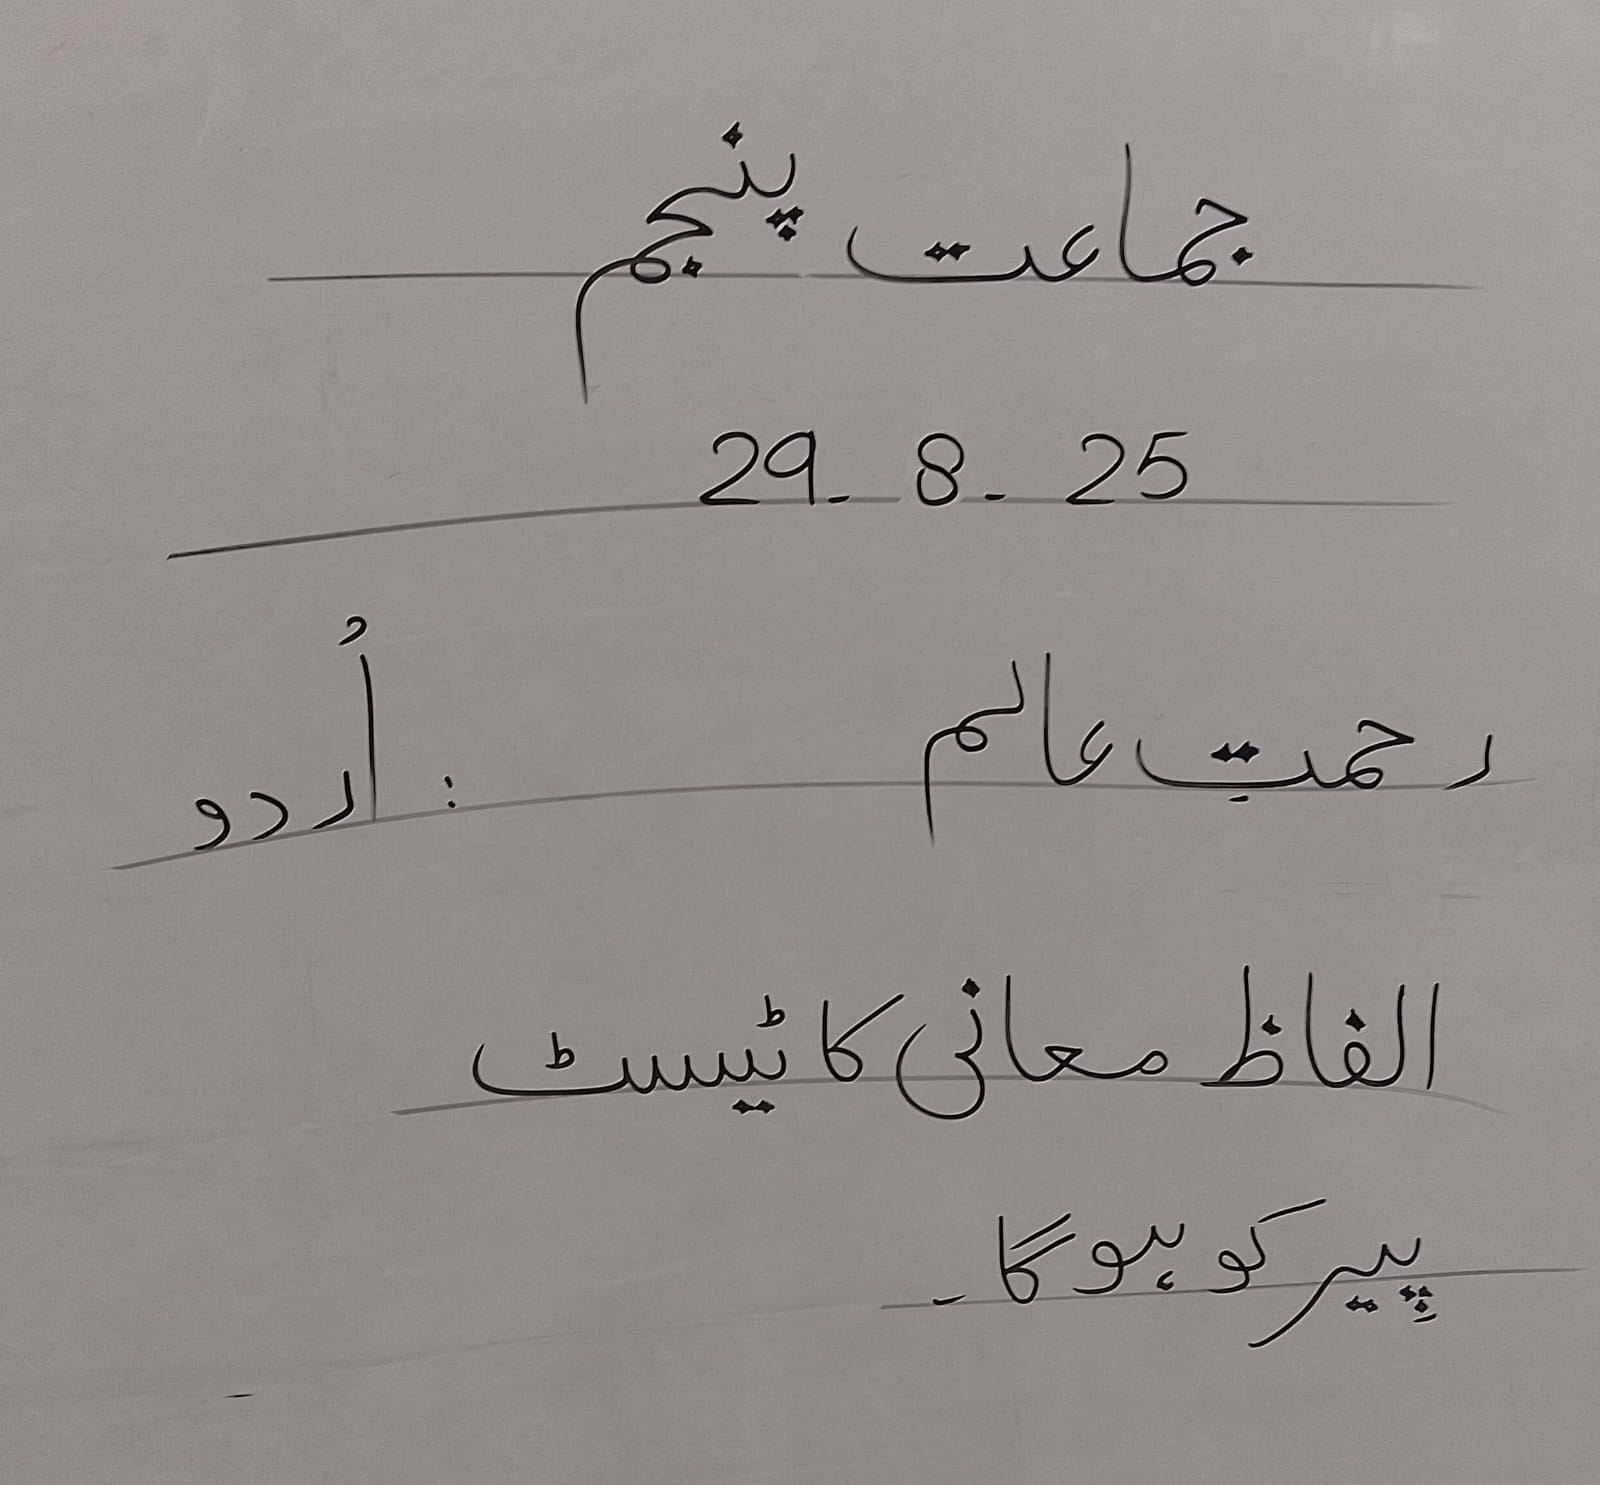 جماعت پنجم
29- 8- 25
رحمتِ عالم : اُردو
الفاظ معانی کا ٹیسٹ
پِیر کو ہوگا۔